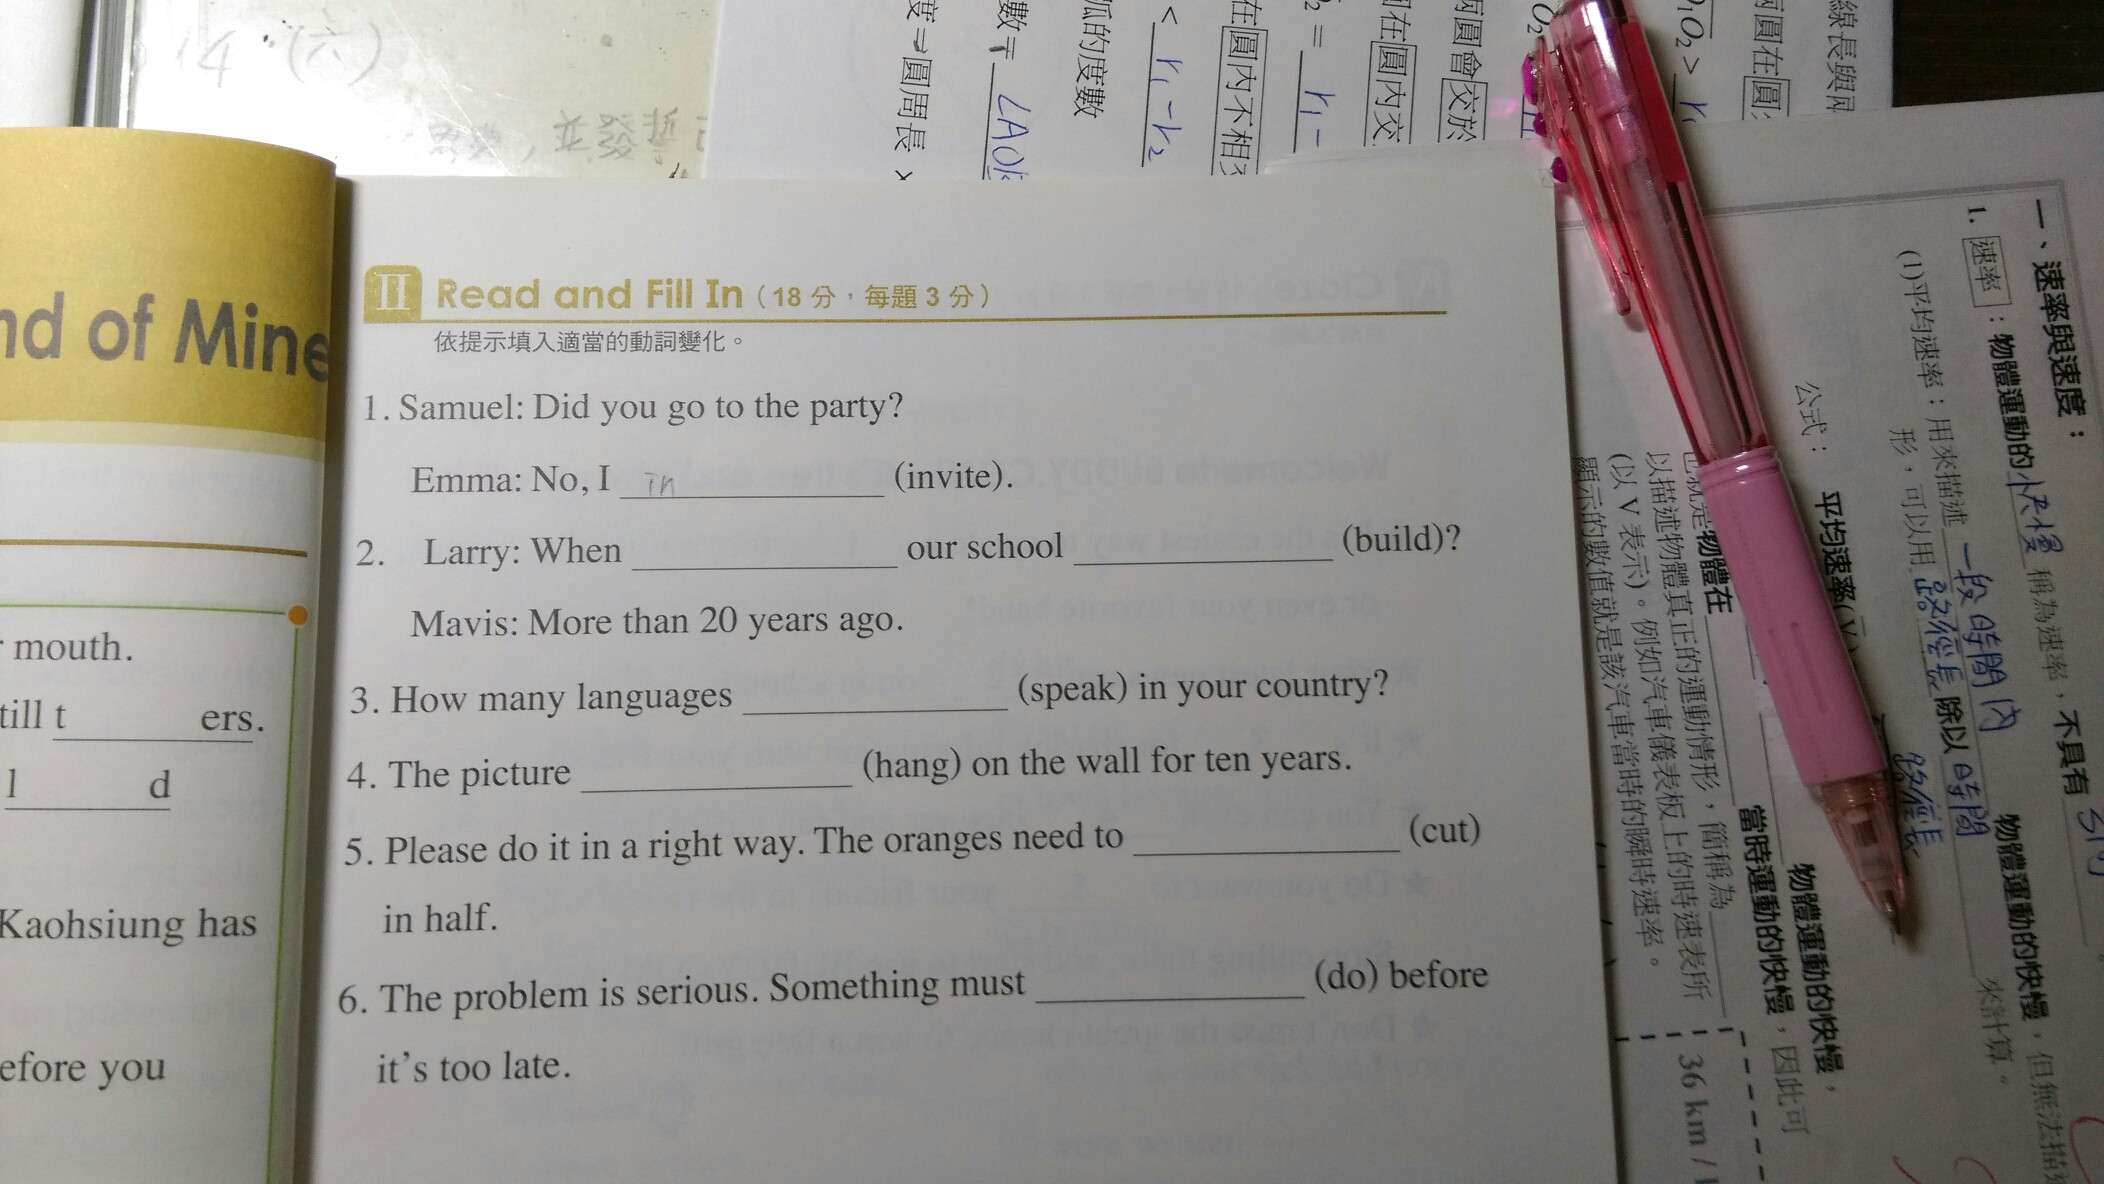 14 (六)
nd of Mine
mouth.
till t________ers.
l________d
Kaohsiung has
efore you
II Read and Fill In (18 分，每題 3 分)
依提示填入適當的動詞變化。
1. Samuel: Did you go to the party?
Emma: No, I in________ (invite).
2. Larry: When ________ our school ________ (build)?
Mavis: More than 20 years ago.
3. How many languages ________ (speak) in your country?
4. The picture ________ (hang) on the wall for ten years.
5. Please do it in a right way. The oranges need to ________ (cut)
in half.
6. The problem is serious. Something must ________ (do) before
it's too late.
線長與兩
兩圓在圓
O₁O₂ > r₁
兩圓會交於
圓在圓內交
O₂ = r₁ -
在圓內不相交
< r₁ - r₂
弧的度數
度數 =
度 = 圓周長 ×
一、速率與速度：
1. 速率：物體運動的快慢稱為速率，不具有
(1)平均速率：用來描述一段時間內物體運動的快慢，但無法描
形，可以用路徑長除以時間來計算。
公式：平均速率
物體運動的快慢，
當時運動的快慢，因此可
也就是物體在
以描述物體真正的運動情形，簡稱為
(以 V 表示)。例如汽車儀表板上的時速表所
顯示的數值就是該汽車當時的瞬時速率。
36 km /